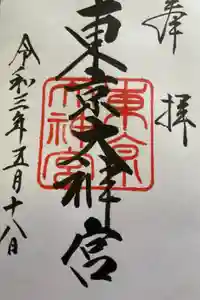 奉拝
東京大神宮
東京大神宮
令和三年五月十八日